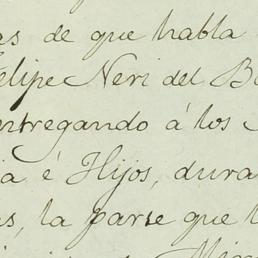 as de que habla
Felipe Neri del B
entregando á los
ia é Hijos, dura
s, la parte que